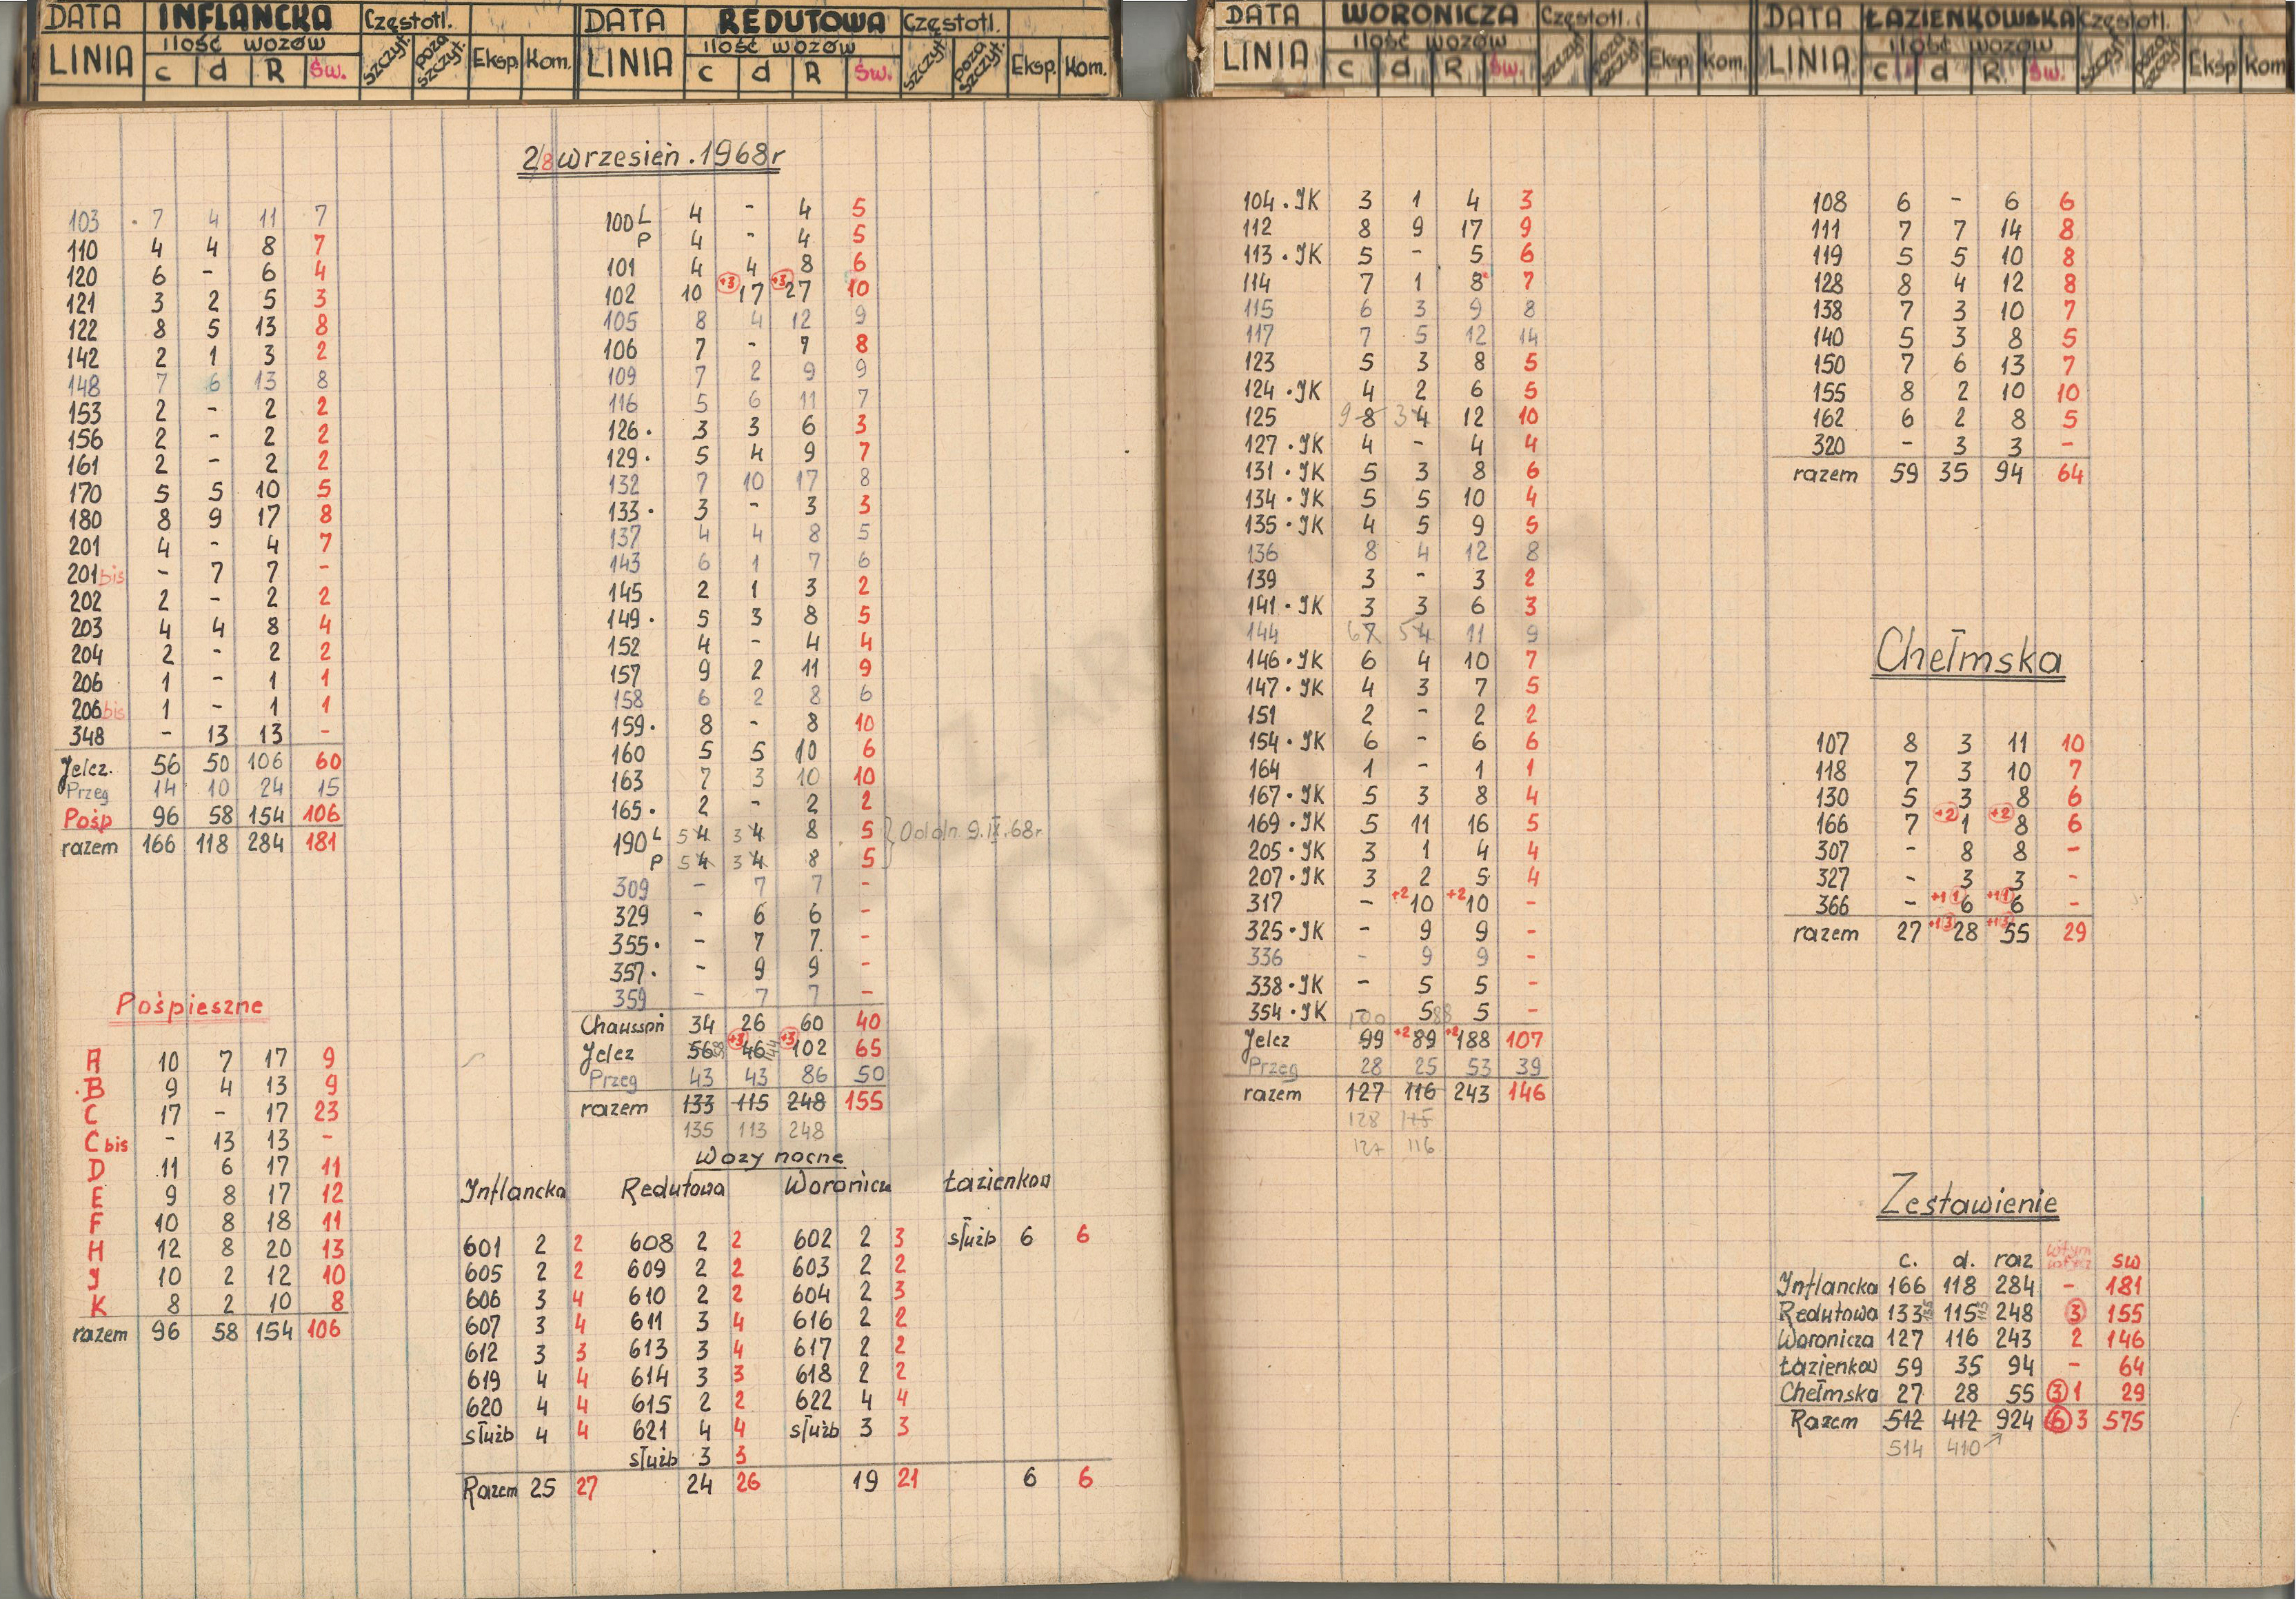 DATA INFLANCKA Częstotl.
LINIA ilość wozów szczyt. poza szczyt. Eksp. Kom.
c d R Św.
DATA REDUTOWA Częstotl.
LINIA ilość wozów szczyt. poza szczyt. Eksp. Kom.
c d R Św.
DATA WORONICZA Częstotl.
LINIA ilość wozów szczyt. poza szczyt. Eksp. Kom.
c d R Św.
DATA ŁAZIENKOWSKA Częstotl.
LINIA ilość wozów szczyt. poza szczyt. Eksp Kom
c d R Św.
2/8 wrzesień . 1968 r
103 . 7 4 11 7
110 4 4 8 7
120 6 - 6 4
121 3 2 5 3
122 8 5 13 8
142 2 1 3 2
148 7 6 13 8
153 2 - 2 2
156 2 - 2 2
161 2 - 2 2
170 5 5 10 5
180 8 9 17 8
201 4 - 4 7
201 bis - 7 7 -
202 2 - 2 2
203 4 4 8 4
204 2 - 2 2
206 1 - 1 1
206 bis 1 - 1 1
348 - 13 13 -
Jelcz. 56 50 106 60
Przeg 14 10 24 15
Pośp 96 58 154 106
razem 166 118 284 181
Pośpieszne
A 10 7 17 9
.B 9 4 13 9
C 17 - 17 23
C bis - 13 13 -
D 11 6 17 11
E 9 8 17 12
F 10 8 18 11
H 12 8 20 13
J 10 2 12 10
K 8 2 10 8
razem 96 58 154 106
100 L 4 - 4 5
P 4 - 4 5
101 4 4 8 6
102 10 +3 17 +3 27 10
105 8 4 12 9
106 7 - 7 8
109 7 2 9 9
116 5 6 11 7
126 . 3 3 6 3
129 . 5 4 9 7
132 7 10 17 8
133 . 3 - 3 3
137 4 4 8 5
143 6 1 7 6
145 2 1 3 2
149 . 5 3 8 5
152 4 - 4 4
157 9 2 11 9
158 6 2 8 6
159 . 8 - 8 10
160 5 5 10 6
163 7 3 10 10
165 . 2 - 2 2
190 L 5 4 3 4 8 5 } Od dn. 9.IX.68 r.
P 5 4 3 4 8 5
309 - 7 7 -
329 - 6 6 -
355 . - 7 7 -
357 . - 9 9 -
359 - 7 7 -
Chausson 34 26 60 40
Jelcz 56 58 +3 46 44 +3 102 65
Przeg 43 43 86 50
razem 133 115 248 155
135 113 248
Wozy nocne
Inflancka Redutowa Woronicz Łazienkow
601 2 2 608 2 2 602 2 3 służb 6 6
605 2 2 609 2 2 603 2 2
606 3 4 610 2 2 604 2 3
607 3 4 611 3 4 616 2 2
612 3 3 613 3 4 617 2 2
619 4 4 614 3 3 618 2 2
620 4 4 615 2 2 622 4 4
służb 4 4 621 4 4 służb 3 3
służb 3 3
Razem 25 27 24 26 19 21 6 6
104 . JK 3 1 4 3
112 8 9 17 9
113 . JK 5 - 5 6
114 7 1 8 7
115 6 3 9 8
117 7 5 12 14
123 5 3 8 5
124 . JK 4 2 6 5
125 9 8 3 4 12 10
127 . JK 4 - 4 4
131 . JK 5 3 8 6
134 . JK 5 5 10 4
135 . JK 4 5 9 5
136 8 4 12 8
139 3 - 3 2
141 . JK 3 3 6 3
144 6 7 5 4 11 9
146 . JK 6 4 10 7
147 . JK 4 3 7 5
151 2 - 2 2
154 . JK 6 - 6 6
164 1 - 1 1
167 . JK 5 3 8 4
169 . JK 5 11 16 5
205 . JK 3 1 4 4
207 . JK 3 2 5 4
317 - +2 10 +2 10 -
325 . JK - 9 9 -
336 - 9 9 -
338 . JK - 5 5 -
354 . JK - 5 5 -
100 88
Jelcz 99 +2 89 +2 188 107
Przeg 28 25 53 39
razem 127 116 243 146
128 115
127 116
108 6 - 6 6
111 7 7 14 8
119 5 5 10 8
128 8 4 12 8
138 7 3 10 7
140 5 3 8 5
150 7 6 13 7
155 8 2 10 10
162 6 2 8 5
320 - 3 3 -
razem 59 35 94 64
Chełmska
107 8 3 11 10
118 7 3 10 7
130 5 3 8 6
166 7 +2 1 +2 8 6
307 - 8 8 -
327 - 3 3 -
366 - +1 1 6 +1 1 6 -
razem 27 +1 3 28 +1 3 55 29
Zestawienie
c. d. raz w tym sw
Inflancka 166 118 284 - 181
Redutowa 133 135 115 113 248 3 155
Woronicza 127 116 243 2 146
Łazienkow 59 35 94 - 64
Chełmska 27 28 55 3 1 29
Razem 512 412 924 6 3 575
514 410